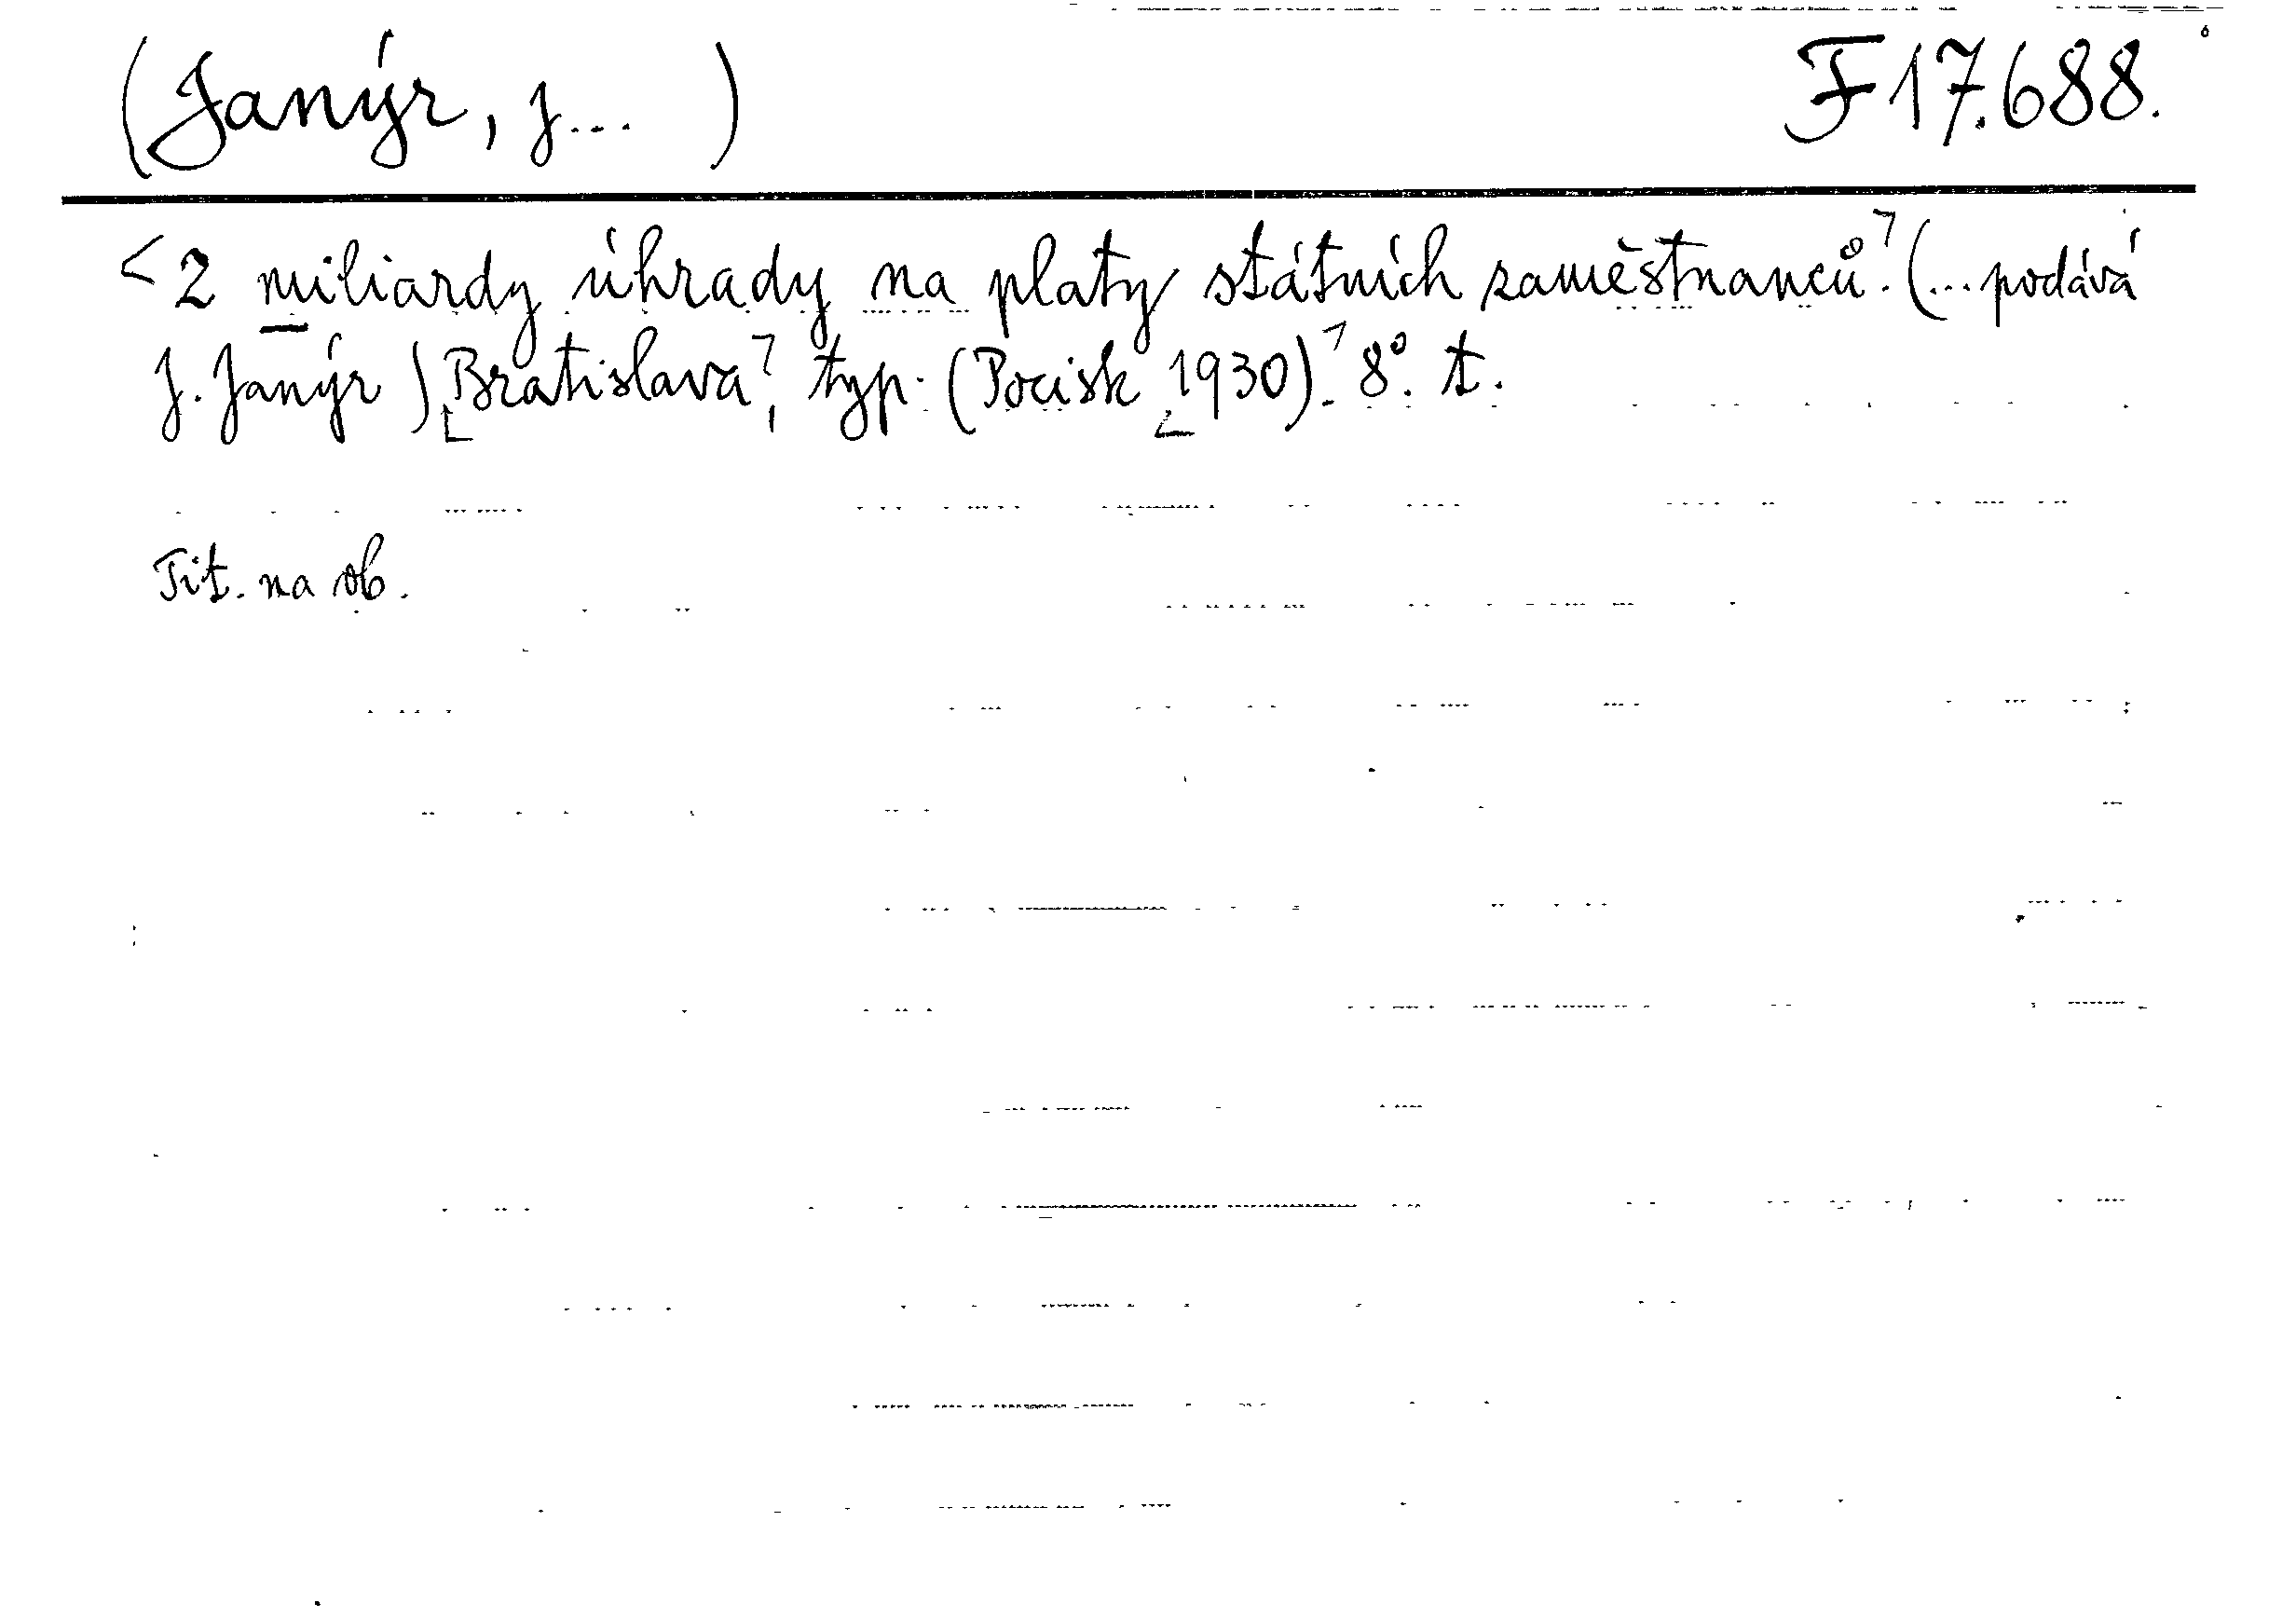 (Janýr, J... ) F 17.688.
<2 miliardy úhrady na platy státních zaměstnanců.⁊ (... podává
J. Janýr) [Bratislava⁊, typ. (Pocisk [1930)⁊. 8°. t.
Tit. na ob.